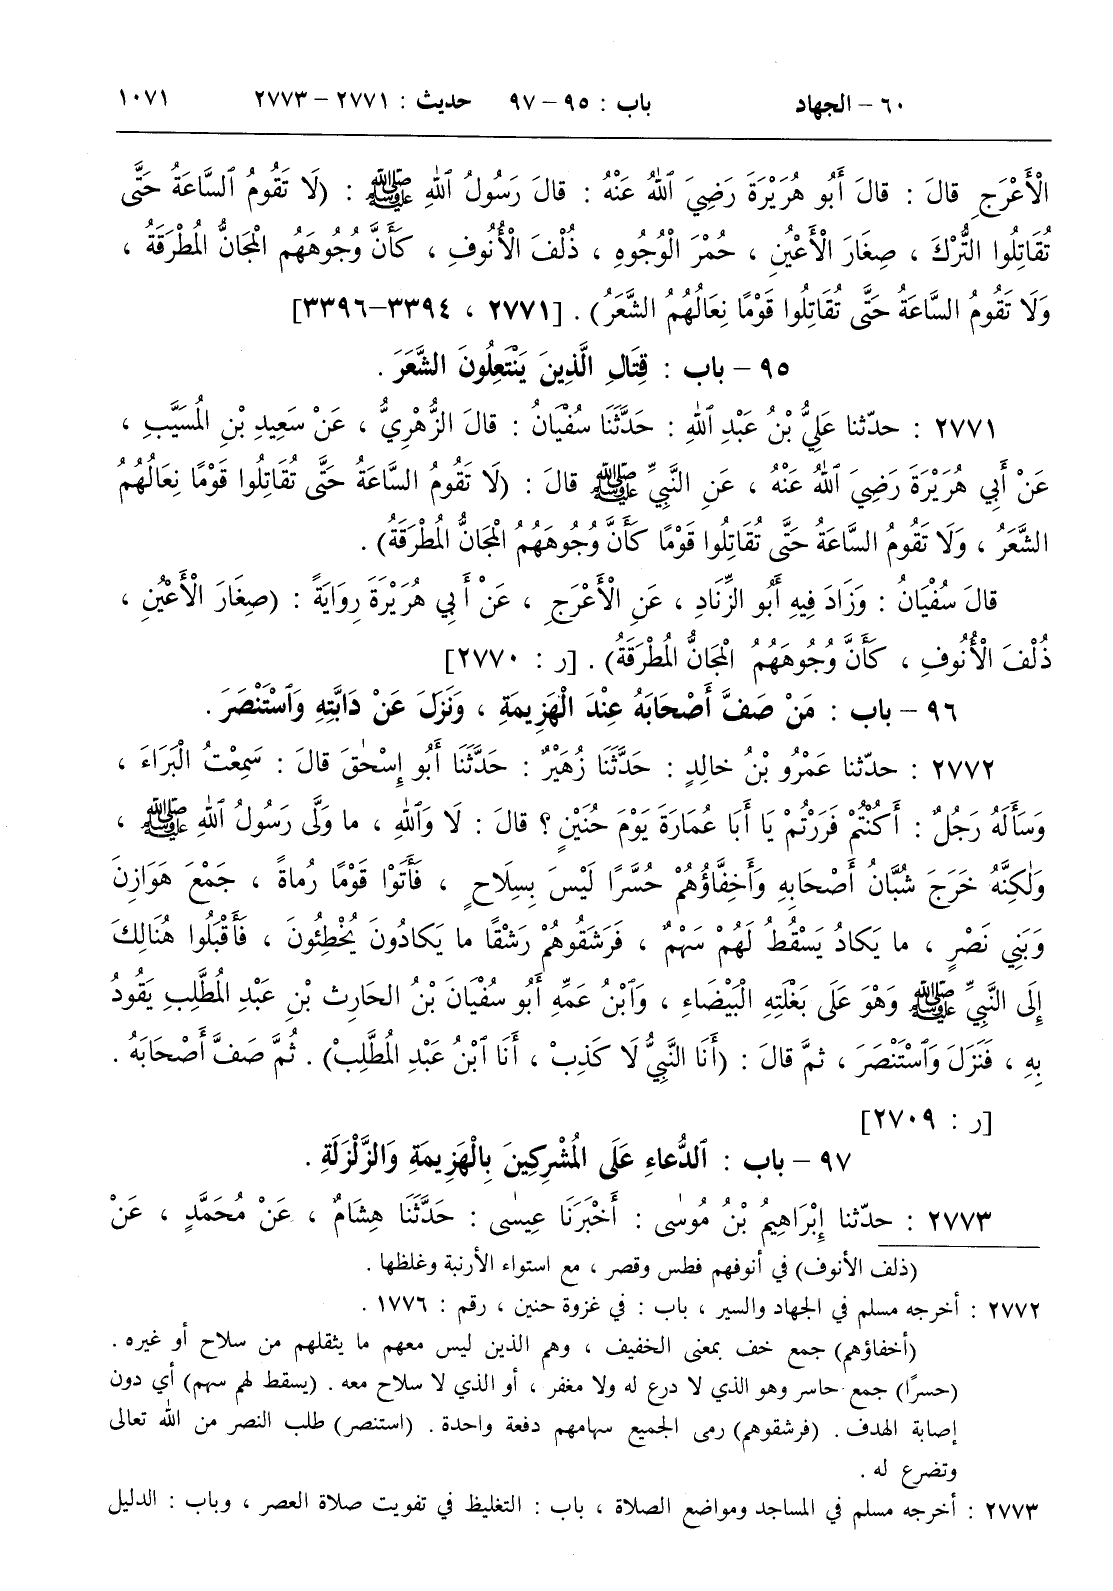 ٦٠ – الجهاد باب : ٩٥ – ٩٧ حديث : ٢٧٧١ – ٢٧٧٣ ١٠٧١
الْأَعْرَجِ قالَ : قالَ أَبُو هُرَيْرَةَ رَضِيَ ٱللهُ عَنْهُ : قالَ رَسُولُ ٱللهِ ﷺ : (لَا تَقُومُ ٱلسَّاعَةُ حَتَّى
تُقَاتِلُوا التُّرْكَ ، صِغَارَ الْأَعْيُنِ ، حُمْرَ الْوُجُوهِ ، ذُلْفَ الْأُنُوفِ ، كَأَنَّ وُجُوهَهُم الْمَجَانُّ الْمُطْرَقَةُ ،
وَلَا تَقُومُ السَّاعَةُ حَتَّى تُقَاتِلُوا قَوْمًا نِعَالُهُمُ الشَّعَرُ) . [٢٧٧١ ، ٣٣٩٤–٣٣٩٦]
٩٥ – باب : قِتَالِ الَّذِينَ يَنْتَعِلُونَ الشَّعَرَ .
٢٧٧١ : حدّثنا عَلِيُّ بْنُ عَبْدِ ٱللهِ : حَدَّثَنَا سُفْيَانُ : قالَ الزُّهْرِيُّ ، عَنْ سَعِيدِ بْنِ الْمُسَيَّبِ ،
عَنْ أَبِي هُرَيْرَةَ رَضِيَ ٱللهُ عَنْهُ ، عَنِ النَّبِيِّ ﷺ قالَ : (لَا تَقُومُ السَّاعَةُ حَتَّى تُقَاتِلُوا قَوْمًا نِعَالُهُمُ
الشَّعَرُ ، وَلَا تَقُومُ السَّاعَةُ حَتَّى تُقَاتِلُوا قَوْمًا كَأَنَّ وُجُوهَهُمُ الْمَجَانُّ الْمُطْرَقَةُ) .
قالَ سُفْيَانُ : وَزَادَ فِيهِ أَبُو الزِّنَادِ ، عَنِ الْأَعْرَجِ ، عَنْ أَبِي هُرَيْرَةَ رِوَايَةً : (صِغَارَ الْأَعْيُنِ ،
ذُلْفَ الْأُنُوفِ ، كَأَنَّ وُجُوهَهُمُ الْمَجَانُّ الْمُطْرَقَةُ) . [ر : ٢٧٧٠]
٩٦ – باب : مَنْ صَفَّ أَصْحَابَهُ عِنْدَ الْهَزِيمَةِ ، وَنَزَلَ عَنْ دَابَّتِهِ وَٱسْتَنْصَرَ .
٢٧٧٢ : حدّثنا عَمْرُو بْنُ خالِدٍ : حَدَّثَنَا زُهَيْرٌ : حَدَّثَنَا أَبُو إِسْحٰقَ قالَ : سَمِعْتُ الْبَرَاءَ ،
وَسَأَلَهُ رَجُلٌ : أَكُنْتُمْ فَرَرْتُمْ يَا أَبَا عُمَارَةَ يَوْمَ حُنَيْنٍ ؟ قالَ : لَا وَٱللهِ ، ما وَلَّى رَسُولُ ٱللهِ ﷺ ،
وَلٰكِنَّهُ خَرَجَ شُبَّانُ أَصْحَابِهِ وَأَخِفَّاؤُهُمْ حُسَّرًا لَيْسَ بِسِلَاحٍ ، فَأَتَوْا قَوْمًا رُماةً ، جَمْعَ هَوَازِنَ
وَبَنِي نَصْرٍ ، ما يَكادُ يَسْقُطُ لَهُمْ سَهْمٌ ، فَرَشَقُوهُمْ رَشْقًا ما يَكادُونَ يُخْطِئُونَ ، فَأَقْبَلُوا هُنَالِكَ
إِلَى النَّبِيِّ ﷺ وَهْوَ عَلَى بَغْلَتِهِ الْبَيْضَاءِ ، وَٱبْنُ عَمِّهِ أَبُو سُفْيَانَ بْنُ الحَارِثِ بْنِ عَبْدِ الْمُطَّلِبِ يَقُودُ
بِهِ ، فَنَزَلَ وَٱسْتَنْصَرَ ، ثمَّ قالَ : (أَنَا النَّبِيُّ لَا كَذِبْ ، أَنَا ٱبْنُ عَبْدِ الْمُطَّلِبْ) . ثُمَّ صَفَّ أَصْحَابَهُ .
[ر : ٢٧٠٩]
٩٧ – باب : ٱلدُّعاءِ عَلَى الْمُشْرِكِينَ بِالْهَزِيمَةِ وَالزَّلْزَلَةِ .
٢٧٧٣ : حدّثنا إِبْرَاهِيمُ بْنُ مُوسٰى : أَخْبَرَنَا عِيسٰى : حَدَّثَنَا هِشَامٌ ، عَنْ مُحَمَّدٍ ، عَنْ
(ذلف الأنوف) في أنوفهم فطس وقصر ، مع استواء الأرنبة وغلظها .
٢٧٧٢ : أخرجه مسلم في الجهاد والسير ، باب : في غزوة حنين ، رقم : ١٧٧٦ .
(أخفاؤهم) جمع خف بمعنى الخفيف ، وهم الذين ليس معهم ما يثقلهم من سلاح أو غيره .
(حسرًا) جمع حاسر وهو الذي لا درع له ولا مغفر ، أو الذي لا سلاح معه . (يسقط لهم سهم) أي دون
إصابة الهدف . (فرشقوهم) رمى الجميع سهامهم دفعة واحدة . (استنصر) طلب النصر من الله تعالى
وتضرع له .
٢٧٧٣ : أخرجه مسلم في المساجد ومواضع الصلاة ، باب : التغليظ في تفويت صلاة العصر ، وباب : الدليل